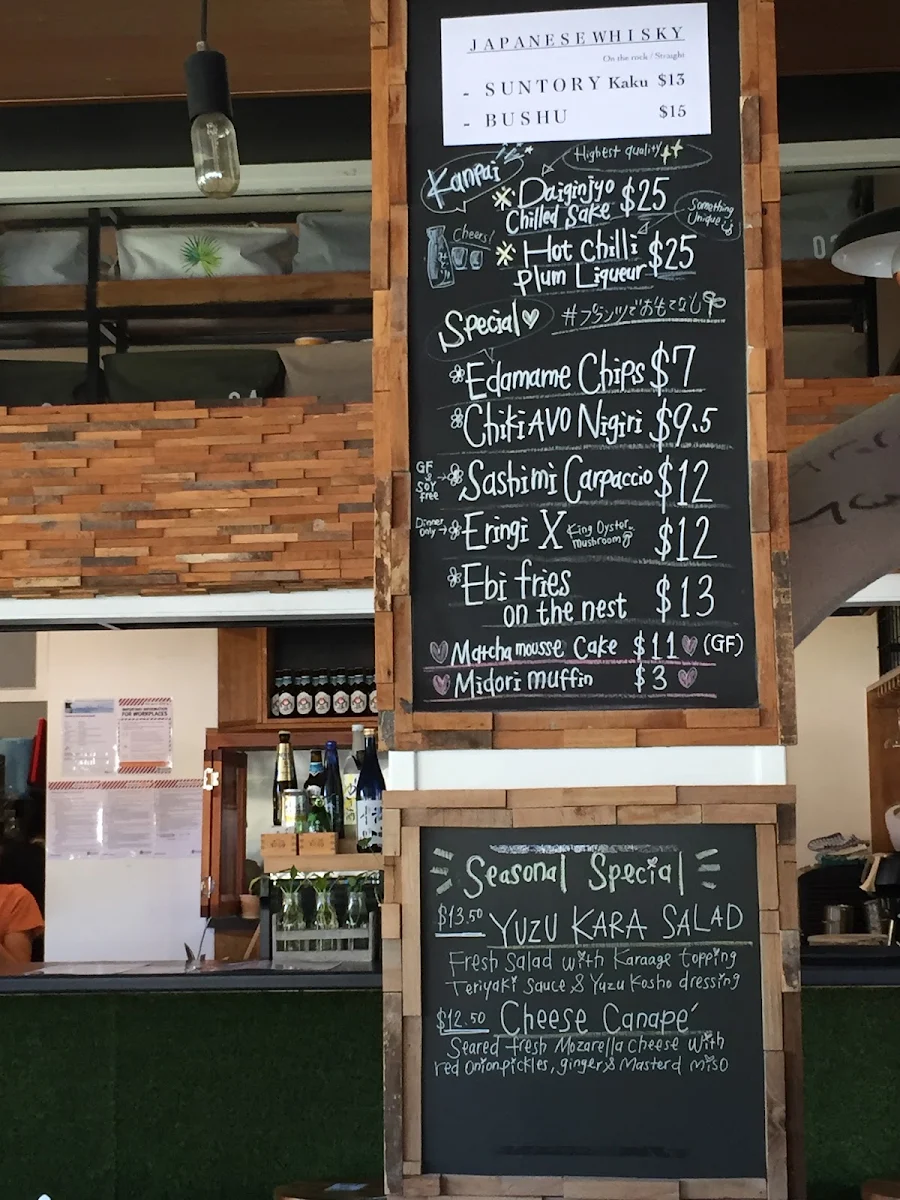 JAPANESE WHISKY
On the rock / Straight
- SUNTORY Kaku $13
- BUSHU $15
Kanpai
Highest quality
Daiginjyo
Chilled Sake $25
Something
Unique
Cheers!
Hot Chilli
Plum Liqueur $25
Special
Edamame Chips $7
Chiki AVO Nigiri $9.5
GF
&
SOY
free
Sashimi Carpaccio $12
Dinner
only
Eringi X King Oyster
mushroom $12
Ebi fries
on the nest $13
Matcha mousse Cake $11 (GF)
Midori muffin $3
FOR WORKPLACES
Seasonal Special
$13.50 YUZU KARA SALAD
Fresh Salad with Karaage topping
Teriyaki Sauce & Yuzu Kosho dressing
$12.50 Cheese Canapé
Seared fresh Mozarella cheese with
red onion pickles, ginger & Masterd miso